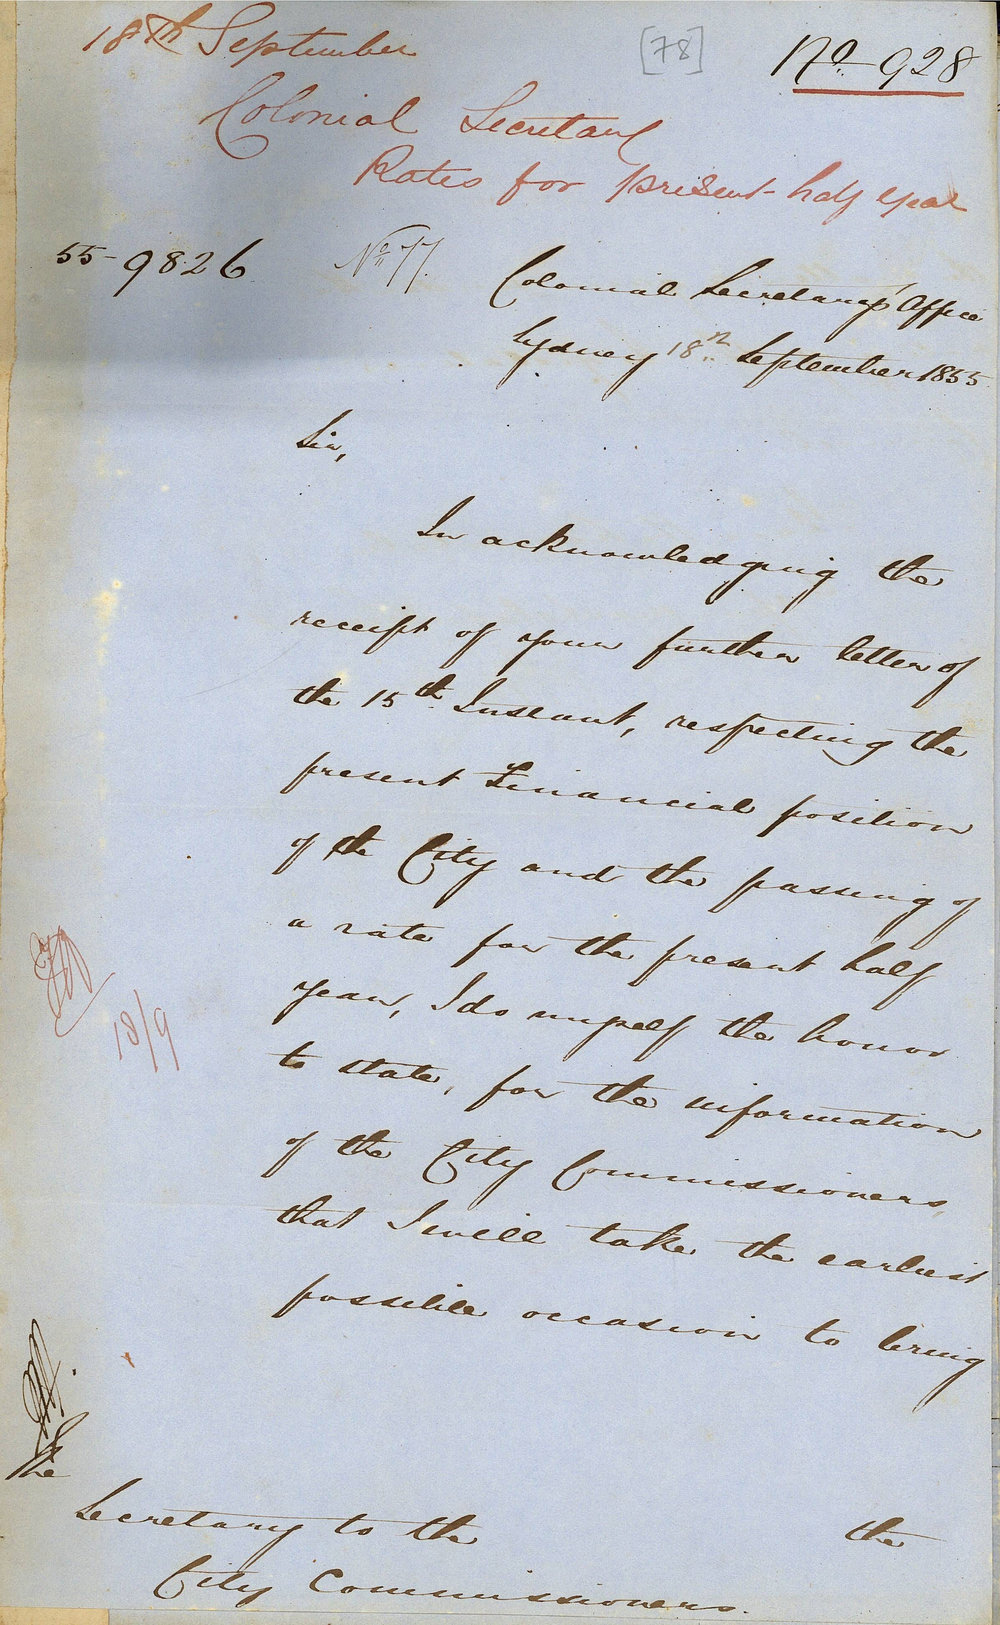 18th September
[78]
No. 928
Colonial Secretary
Rates for present half year
55-9826
No. 77.
Colonial Secretary's Office
Sydney 18th September 1855
Sir,
In acknowledging the
receipt of your further letter of
the 15th Instant, respecting the
present Financial position
of the City and the passing of
a rate for the present half
year, I do myself the honor
to state, for the information
of the City Commissioners,
that I will take the earliest
possible occasion to bring
18/9
The
Secretary to the
City Commissioners.
the